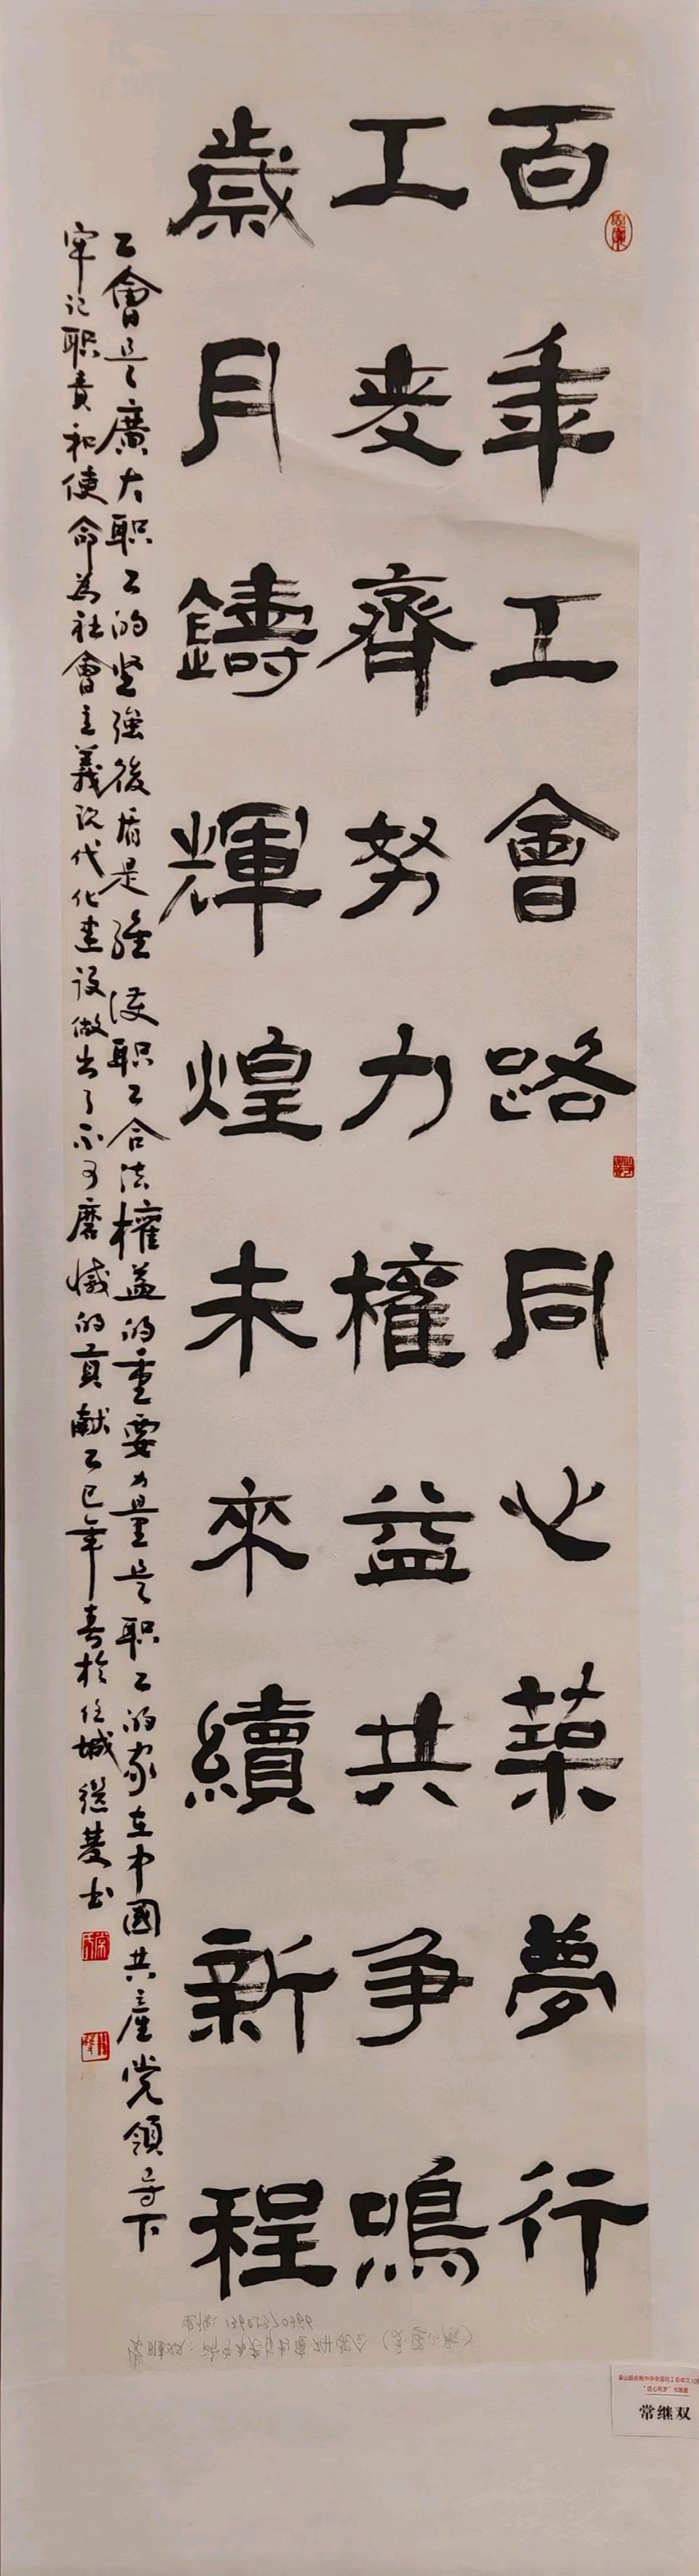 百年工會路同心築夢行
工友齊努力權益共争鳴
歲月鑄輝煌未來續新程
工會是廣大职工的坚強後盾是維護职工合法權益的重要力量是职工的家在中國共產党領导下
牢记职责和使命為社會主義现代化建设做出了不可磨滅的貢献乙巳年春於任城继双书
常继双